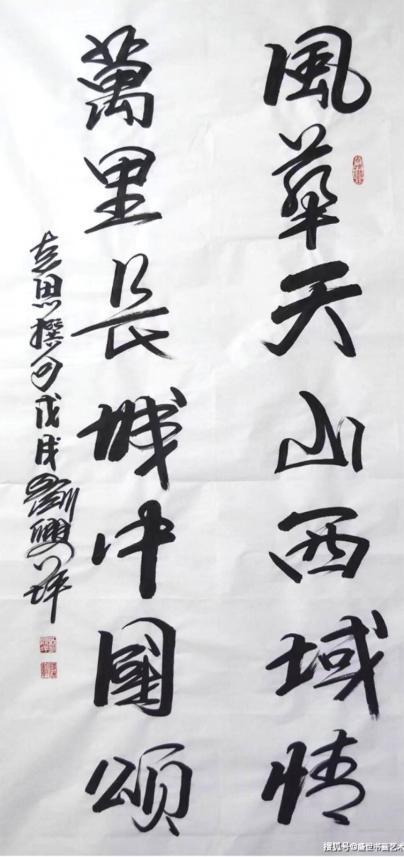 風華天山西域情
萬里長城中國颂
袁思撰句戊戌劉興祥
搜狐号@盛世书画艺术